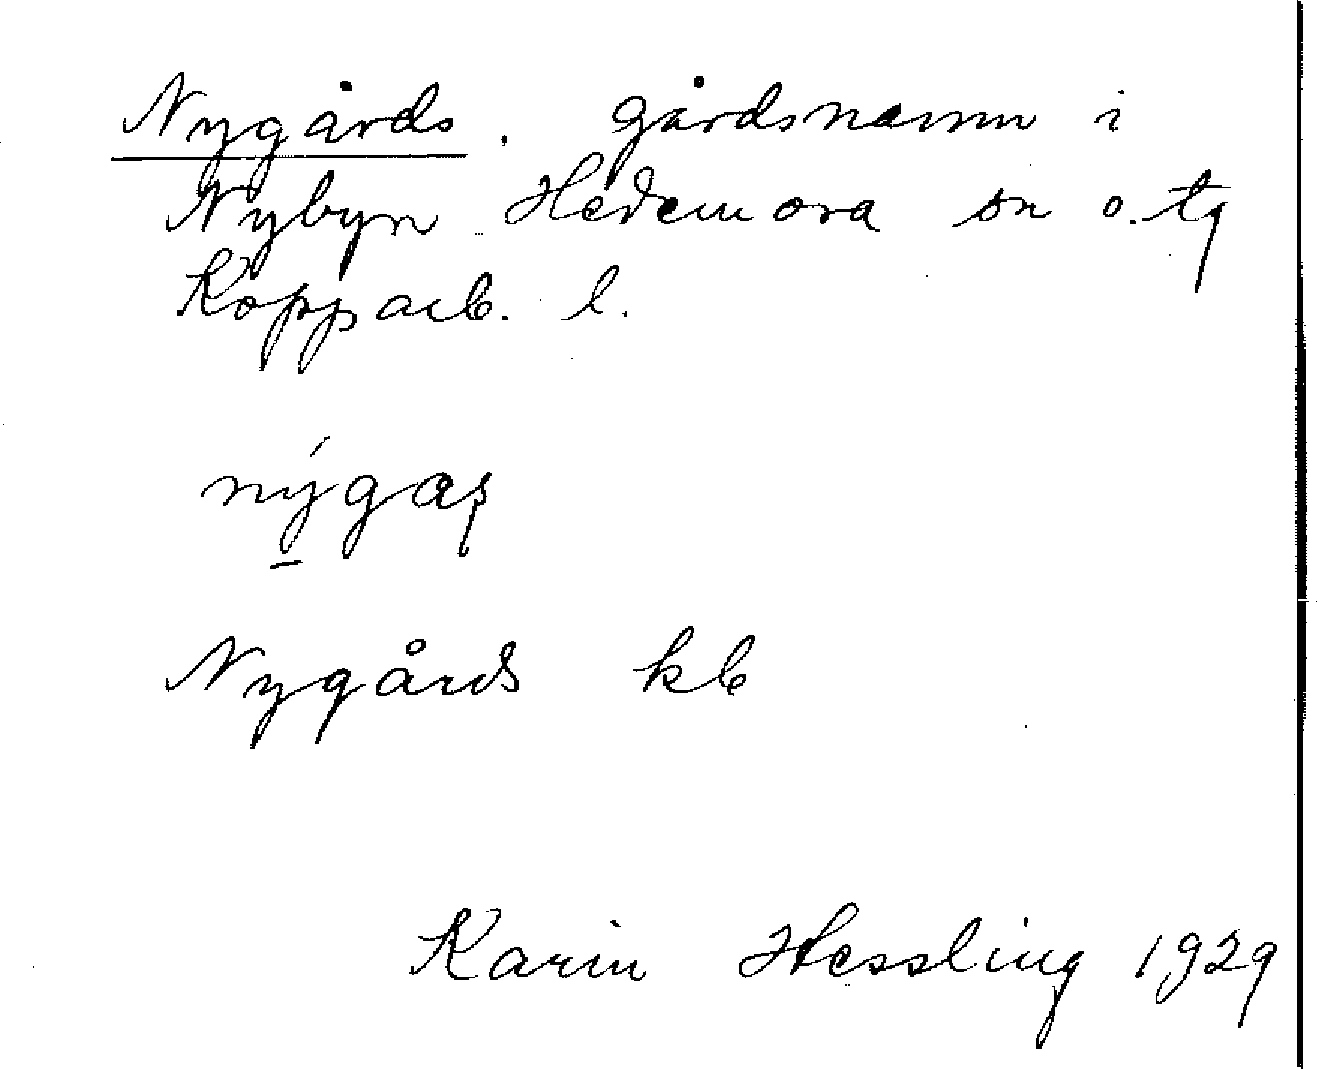 Nygårds. gårdsnamn i
Nybyn Hedemora sn o. tg
Kopparb. l.
nýgaṣ
Nygårds kb
Karin Hessling 1929